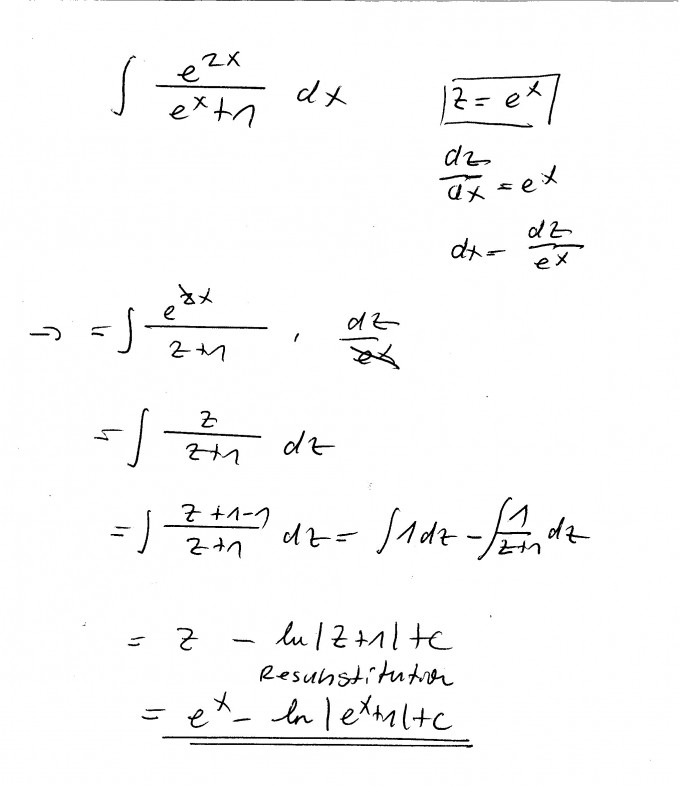 ∫ e^{2x}/(e^x+1) dx    z = e^x
dz/dx = e^x
dx = dz/e^x
→ = ∫ e^{2x}/(z+1) · dz/e^x
= ∫ z/(z+1) dz
= ∫ (z+1-1)/(z+1) dz = ∫1dz - ∫1/(z+1) dz
= z - ln|z+1|+c
Resubstitution
= e^x - ln|e^x+1|+c